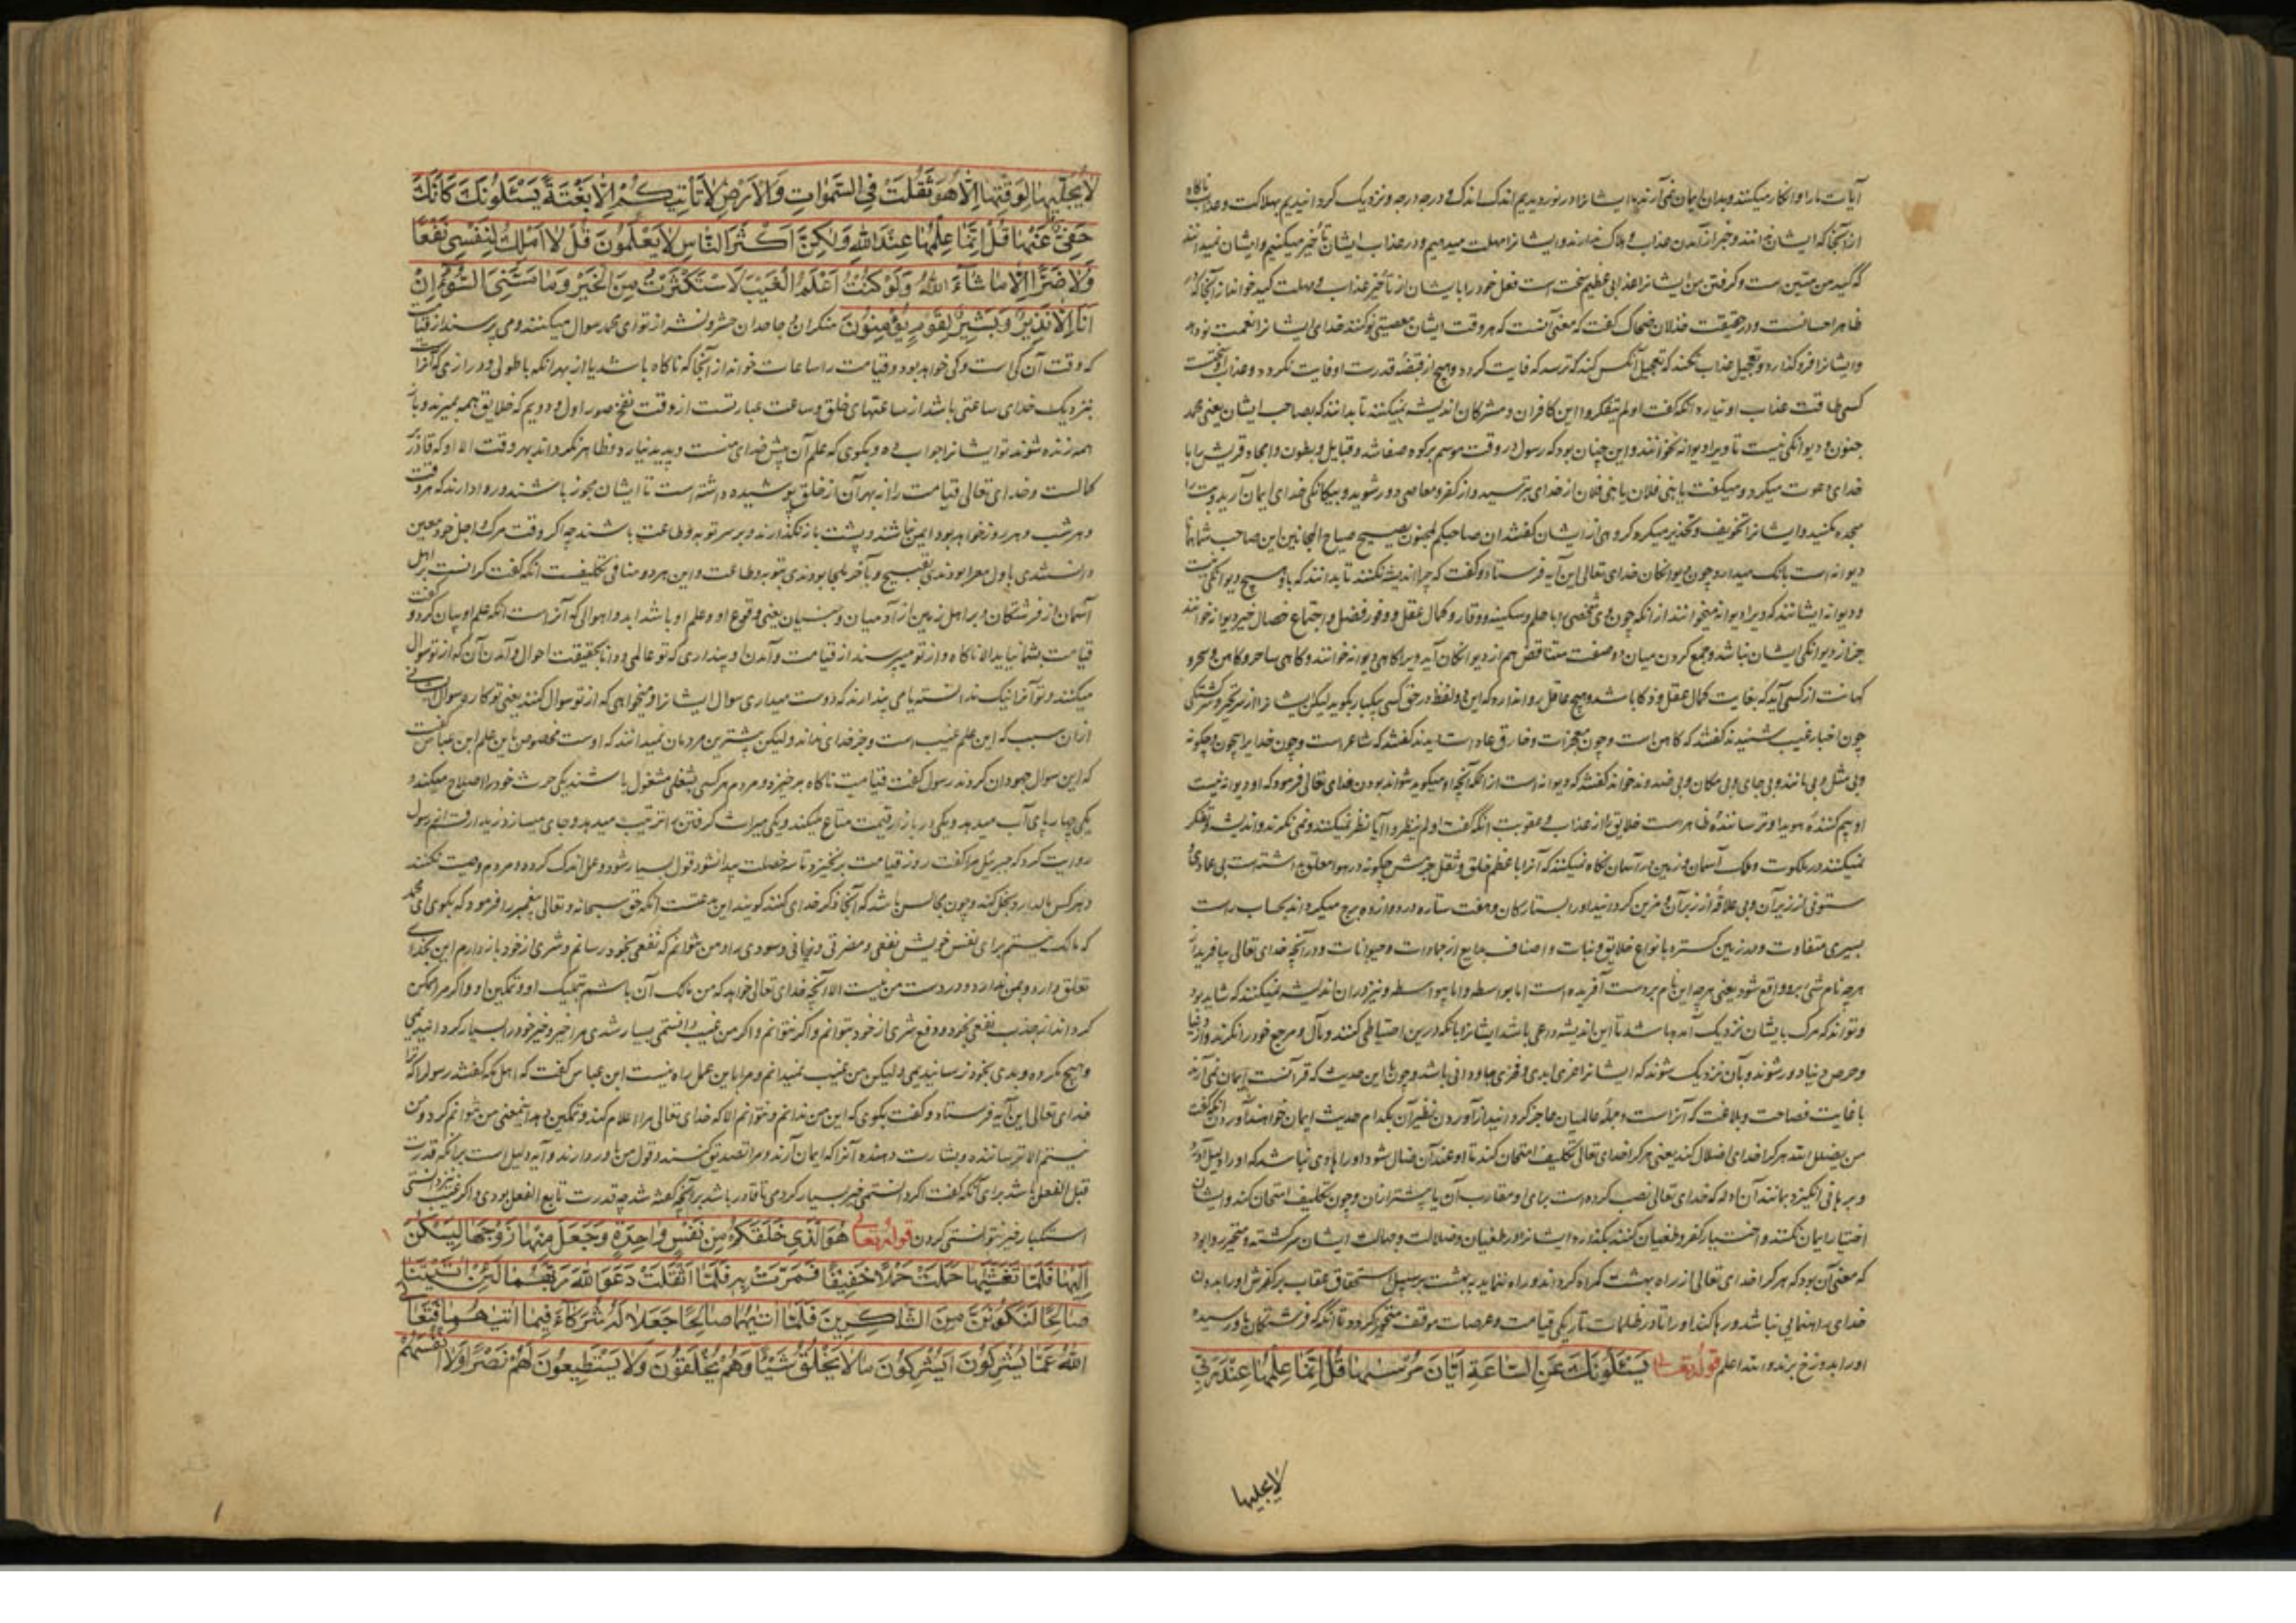 آیات ما را و انکار میکنند و بدان ایمان نمی‌آرند ما ایشانرا در نوردیدیم اندک اندک و درجه درجه و نزدیک گردانیدیم بهلاکت و عذاب ناکاه
از آنجا که ایشان ندانند و خبر از آمدن عذاب و هلاک ندارند و ایشانرا مهلت میدهیم و در عذاب ایشان تأخیر میکنیم و ایشان نمیدانند
که کید من متین است و کرفتن من ایشانرا عذابی عظیم سخت است فعل خود را با ایشان از تأخیر عذاب و مهلت کید خواند از آنجا که
ظاهر احسانست و در حقیقت خذلان ضحاک کفت که معنی آنست که هر وقت ایشان معصیتی نو کنند خدای ایشانرا نعمت نو دهد
و ایشانرا فرو گذارد و تعجیل عذاب نکند که تعجیل آنکس کند که ترسد که فایت کردد و هیچ از قبضه قدرت او فایت نکردد و عذاب او سخت است
کسی طاقت عذاب او نیارد آنکه کفت اولم یتفکروا این کافران و مشرکان اندیشه نمیکنند تا بدانند که بصاحب ایشان یعنی محمد
جنون و دیوانکی نیست تا ویرا دیوانه نخوانند و این چنان بود که رسول در وقت موسم بر کوه صفا شد و قبایل و بطون و افخاذ قریش را با
خدای دعوت میکرد و میکفت یا بنی فلان یا بنی فلان از خدای بترسید و از کفر و معاصی دور شوید و بیکانکی خدای ایمان آرید و بت را
سجده مکنید و ایشانرا تخویف و تحذیر میکرد کروهی از ایشان کفتند ان صاحبکم لمجنون یصیح صیاح المجانین این صاحب شما
دیوانه است بانک میدارد چون دیوانکان خدای تعالی این آیه فرستاد و کفت که چرا اندیشه نکنند تا بدانند که با او هیچ دیوانکی نیست
و دیوانه ایشانند که ویرا دیوانه میخوانند از آنکه چون وی شخصی را با حلم و سکینه و وقار و کمال عقل و وفور فضل و اجتماع خصال خیر دیوانه خوانند
جز از دیوانکی ایشان نباشد و جمع کردن میان دو صفت متناقض هم از دیوانکان آید ویرا کاهی دیوانه خوانند و کاهی ساحر و کاهن و سحر و
کهانت از کسی آید که بغایت کمال عقل و ذکا باشد و هیچ عاقل روا ندارد که این دو لفظ در حق کسی بیکبار بکوید لیکن ایشانرا از سر تحیر و سرکشتکی
چون اخبار غیب شنیدند کفتند که کاهن است و چون معجزات و خارق عادات دیدند کفتند که شاعر است و چون خدای را بیچون و چکونه
و بی مثل و بی مانند و بی جای و بی مکان و بی ضد و ند خواند کفتند که دیوانه است از آنکه آنچه او میکوید نتواند بودن خدای تعالی فرمود که او دیوانه نیست
او بیم کننده هویدا و ترساننده ظاهر است خلایق را از عذاب و عقوبت آنکه کفت اولم ینظروا آیا نظر نمیکنند و نمی نکرند و اندیشه و تفکر
نمیکنند در ملکوت و ملک آسمان و زمین در آسمان نکاه نمیکنند که آنرا با عظم خلق و ثقل جرمش چکونه در هوا معلق بداشته است بی عمادی و
ستونی از زیر آن و بی علاقه از زبر آن و مزین کردانید او را بستارکان و هفت ستاره در دوازده برج میکرداند بحساب راست
بسیری متفاوت و در زمین کسترده با انواع خلایق و نبات و اصناف بدایع از جمادات و حیوانات و در آنچه خدای تعالی بیافرید از
هر چه نام شی بر و واقع شود یعنی هر چه این نام بر وست آفریده است اما بواسطه و اما بیواسطه و نیز در ان اندیشه نمیکنند که شاید بود
و تواند که مرک بایشان نزدیک آمده باشد تا این اندیشه داعی باشد ایشانرا بآنکه در دین احتیاطی کنند و مآل و مرجع خود را نکرند و از دنیا
و حرص دنیا دور شوند و بآن نزدیک شوند که ایشانرا عزی ابدی و فخری جاودانی باشد و چون باین حدیث که قرآنست ایمان نمی‌آرند
با غایت فصاحت و بلاغت که آنراست و جمله عالمیان عاجز کردانید از آوردن نظیر آن بکدام حدیث ایمان خواهند آوردن آنکه کفت
من یضلل الله هر که را خدای اضلال کند یعنی هر کرا خدای تعالی بتکلیف امتحان کند تا او عند آن ضال شود او را هادی نباشد که او را دلیل آرد
و برهانی انکیزد بمانند آن ادله که خدای تعالی نصب کرده است برای او مقارب آن یا بیشتر از آن و چون بتکلیف امتحان کند و ایشان
اختیار ایمان نکنند و اختیار کفر و طغیان کنند بکذارد ایشانرا در طغیان و ضلالت و جهالت ایشان سرکشته و متحیر و روا بود
که معنی آن بود که هر کرا خدای تعالی از راه بهشت کمراه کرداند و راه ننماید به بهشت بر سبیل استحقاق عقاب بر کفرش او را بدون
خدای راهنمایی نباشد و رها کند او را تا در ظلمات تاریکی قیامت و عرصات موقف متحیر کردد تا آنکه که فرشتکان باو رسیده
او را بدوزخ برند و الله اعلم قوله تعالی یَسْئَلُونَكَ عَنِ السَّاعَةِ اَیَّانَ مُرْسٰیهَا قُلْ اِنَّمَا عِلْمُهَا عِنْدَ رَبِّی
لا یجلیها
لَا یُجَلِّیهَا لِوَقْتِهَا اِلَّا هُوَ ثَقُلَتْ فِی السَّمٰوَاتِ وَالْاَرْضِ لَا تَأْتِیكُمْ اِلَّا بَغْتَةً یَسْئَلُونَكَ كَاَنَّكَ
حَفِیٌّ عَنْهَا قُلْ اِنَّمَا عِلْمُهَا عِنْدَ اللهِ وَلٰكِنَّ اَكْثَرَ النَّاسِ لَا یَعْلَمُونَ قُلْ لَا اَمْلِكُ لِنَفْسِی نَفْعًا
وَلَا ضَرًّا اِلَّا مَا شَآءَ اللهُ وَلَوْ كُنْتُ اَعْلَمُ الْغَیْبَ لَاسْتَكْثَرْتُ مِنَ الْخَیْرِ وَمَا مَسَّنِیَ السُّوٓءُ اِنْ
اَنَا اِلَّا نَذِیرٌ وَبَشِیرٌ لِقَوْمٍ یُؤْمِنُونَ منکران و جاحدان حشر و نشر از تو ای محمد سوال میکنند و می پرسند از قیامت
که وقت آن کی است و کی خواهد بود و قیامت را ساعات خواند از آنجا که ناکاه باشد یا از بهر آنکه با طولی و درازی که آنراست
بنزدیک خدای ساعتی باشد از ساعتهای خلق و ساعت عبارتست از وقت نفخ صور اول و دویم که خلایق همه بمیرند و باز
همه زنده شوند تو ایشانرا جواب ده و بکوی که علم آن پیش خدای منست و پدید نیارد و ظاهر نکرداند بهر وقت الا او که قادر بر
کمالست و خدای تعالی قیامت را از بهر آن از خلق پوشیده داشته است تا ایشان مجوز باشند و روا دارند که هر وقت
و هر شب و هر روز خواهد بود ایمن نباشند و پشت باز نکذارند و بر سر توبه و طاعت باشند چه اکر وقت مرک و اجل خود معین
دانستندی باول معرا بودندی بقبیح و بآخر ملجا بودندی بتوبه و طاعت و این هر دو منافی تکلیفست آنکه کفت کرانست بر اهل
آسمان از فرشتکان و بر اهل زمین از آدمیان و جنیان یعنی وقوع او و علم او باشداید و اهوالی که آنراست آنکه علم او بیان کرد و کفت
قیامت بشما نیاید الا ناکاه و از تو میپرسند از قیامت و آمدن او پنداری که تو عالمی و دانا بحقیقت احوال و آمدن آن که از تو سوال
میکنند و تو آنرا نیک ندانسته یا می پندارند که دوست میداری سوال ایشانرا و میخواهی که از تو سوال کنند یعنی تو کاره سوال ایشانی
از آن سبب که این علم غیب است و جز خدای نداند و لیکن بیشترین مردمان نمیدانند که اوست مخصوص باین علم ابن عباس کفت
که این سوال جهودان کردند رسول کفت قیامت ناکاه بر خیزد و مردم هر کسی بشغلی مشغول باشند یکی حوض خود را اصلاح میکند و
یکی چهارپای آب میدهد و یکی در بازار قیمت متاع میکند و یکی میراث کرفتن را ترتیب میدهد و جای میسازد زید ارقم از رسول
روایت کرد که جبرئیل مرا کفت روز قیامت بر نخیزد تا سه خصلت پیدا نشود قول بسیار شود و عمل اندک کردد و مردم وصیت نکنند
و هر کس مال دارد و بخل کند و چون مجالس باشد که آنجا ذکر خدای کنند کویند این بدعتست آنکه حق سبحانه و تعالی پیغمبر را فرمود که بکوی ای محمد
که مالک نیستم برای نفس خویش نفعی و مضرتی و زیانی و سودی را و من نتوانم که نفعی بخود رسانم و شری از خود باز دارم این بخدای
تعلق دارد و بمن ندارد و در دست من نیست الا آنچه خدای تعالی خواهد که من مالک آن باشم بتملیک او و تمکین او و اکر مرا ممکن
کرداند از جذب نفعی بخود و دفع شری از خود بتوانم و اکر نه نتوانم و اکر من غیب دانستمی بسیار شدی مرا خیر و خیر خود را بسیار کردانیدمی
و هیچ مکروه و بدی بخود نرسانیدیمی و لیکن من غیب نمیدانم و مرا باین عمل راه نیست ابن عباس کفت که اهل مکه کفتند رسول را که
خدای تعالی این آیه فرستاد و کفت بکوی که این من ندانم و نتوانم الا که خدای تعالی مرا اعلام کند و تمکین دهد اینمعنی من نتوانم کرد و من
نیستم الا ترساننده و بشارت دهنده آنرا که ایمان آرند و مرا تصدیق کنند و قول من باور دارند و آیه دلیل است بر آنکه قدرت
قبل الفعل باشد برای آنکه کفت اکر دانستمی خیر بسیار کردمی تا قادر باشد بر آنچه کفته شد چه قدرت تابع الفعل بودی و اکر غیب نیز دانستی
استکثار خیر نتوانستی کردن قوله تعالی هُوَ الَّذِی خَلَقَكُمْ مِنْ نَفْسٍ وَاحِدَةٍ وَجَعَلَ مِنْهَا زَوْجَهَا لِیَسْكُنَ
اِلَیْهَا فَلَمَّا تَغَشّٰیهَا حَمَلَتْ حَمْلًا خَفِیفًا فَمَرَّتْ بِهِ فَلَمَّا اَثْقَلَتْ دَعَوَا اللهَ رَبَّهُمَا لَئِنْ اٰتَیْتَنَا
صَالِحًا لَنَكُونَنَّ مِنَ الشَّاكِرِینَ فَلَمَّا اٰتٰیهُمَا صَالِحًا جَعَلَا لَهُ شُرَكَآءَ فِیمَا اٰتٰیهُمَا فَتَعَالَی
اللهُ عَمَّا یُشْرِكُونَ اَیُشْرِكُونَ مَا لَا یَخْلُقُ شَیْئًا وَهُمْ یُخْلَقُونَ وَلَا یَسْتَطِیعُونَ لَهُمْ نَصْرًا وَلَا اَنْفُسَهُمْ